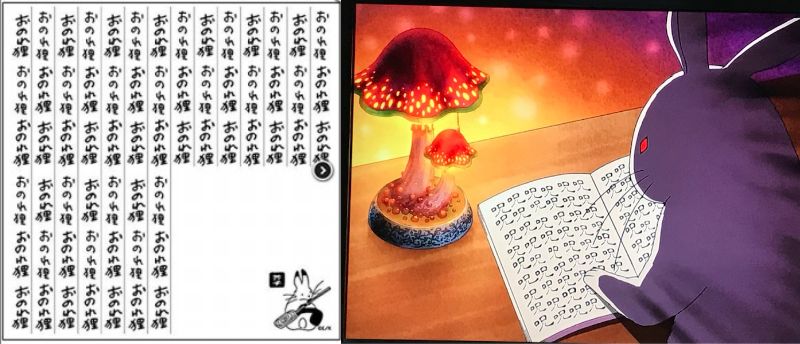 おのれ狸おのれ狸おのれ狸
おのれ狸おのれ狸おのれ狸
おのれ狸おのれ狸おのれ狸
おのれ狸おのれ狸おのれ狸
おのれ狸おのれ狸おのれ狸
おのれ狸おのれ狸おのれ狸
おのれ狸おのれ狸おのれ狸
おのれ狸おのれ狸おのれ狸おのれ狸おのれ狸おのれ狸
おのれ狸おのれ狸おのれ狸おのれ狸おのれ狸おのれ狸
おのれ狸おのれ狸おのれ狸おのれ狸おのれ狸おのれ狸
おのれ狸おのれ狸おのれ狸おのれ狸おのれ狸おのれ狸
おのれ狸おのれ狸おのれ狸おのれ狸おのれ狸おのれ狸
おのれ狸おのれ狸おのれ狸おのれ狸おのれ狸おのれ狸
おのれ狸おのれ狸おのれ狸おのれ狸おのれ狸おのれ狸
呪呪呪呪呪呪呪呪
呪呪呪呪呪呪呪呪
呪呪呪呪呪呪呪呪
呪呪呪呪呪呪呪呪